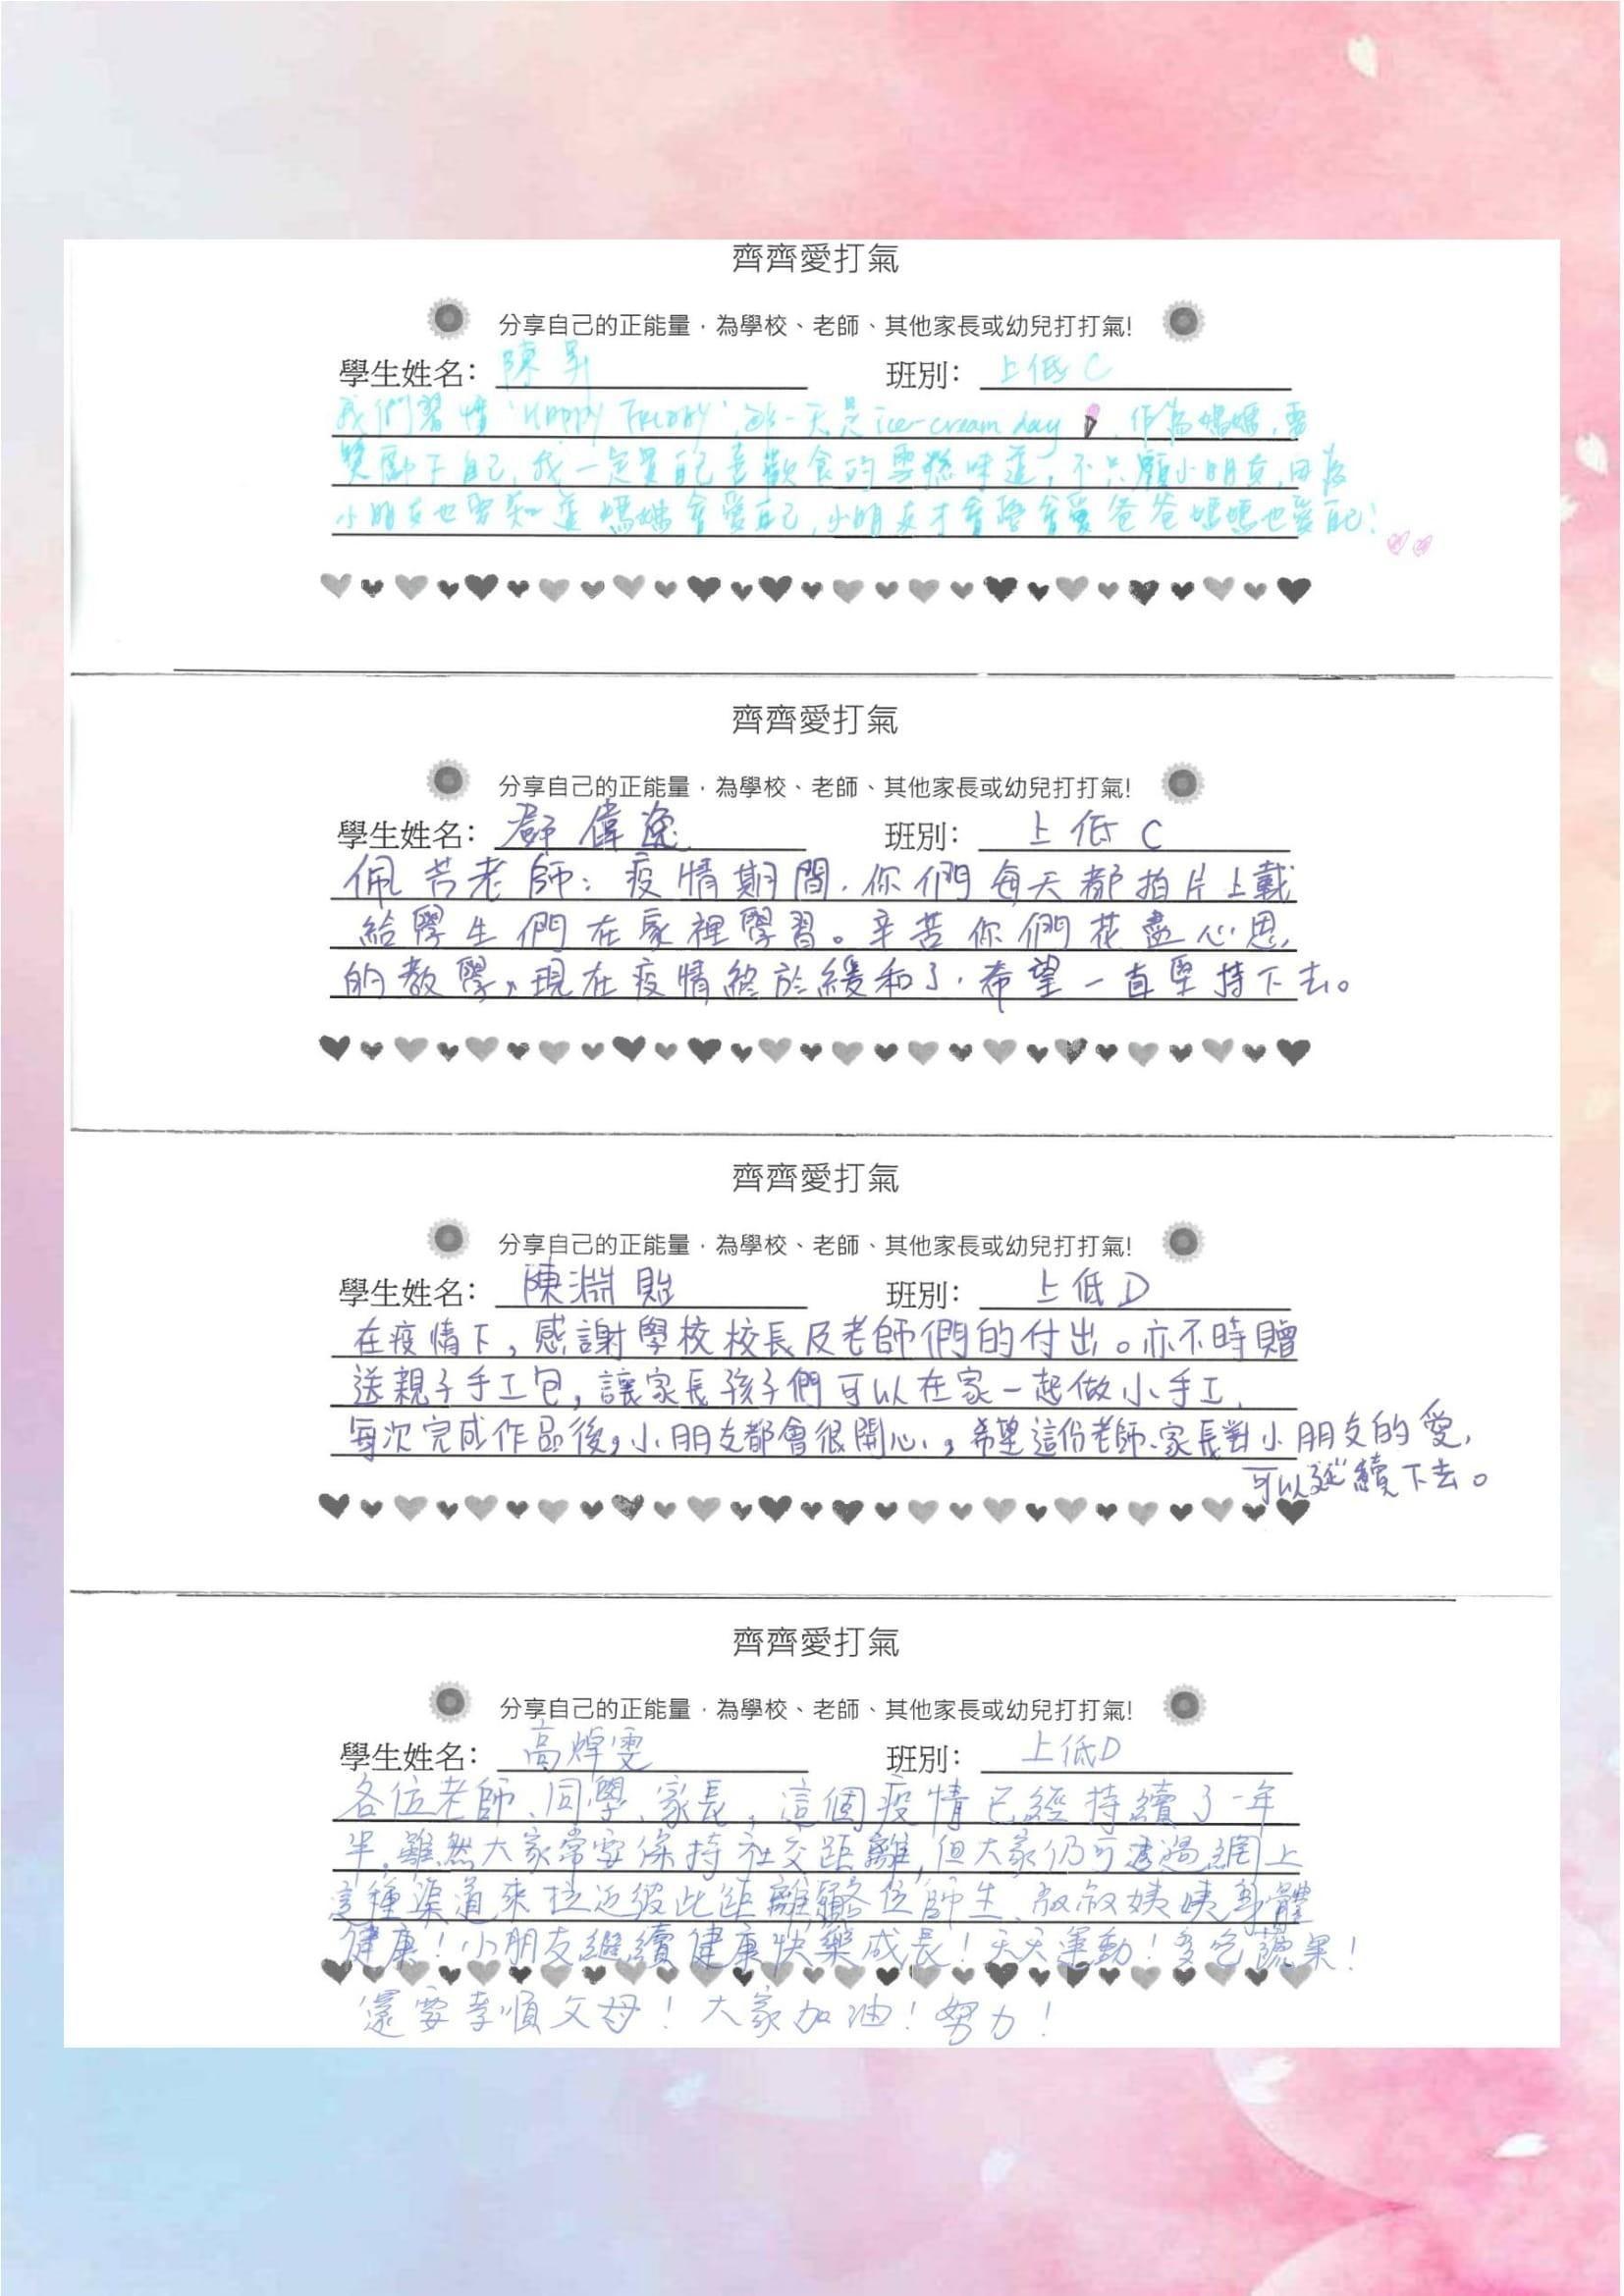 齊齊愛打氣
分享自己的正能量，為學校、老師、其他家長或幼兒打打氣!
學生姓名： 陳昇 班別： 上低C
我們習慣 'Happy Friday', 這一天是 ice-cream day, 作為媽媽, 需
獎勵下自己, 我一定買自己喜歡食的雪糕味道, 不只顧小朋友, 因為
小朋友也要知道媽媽會愛自己, 小朋友才會學會愛爸爸媽媽也愛自己!
齊齊愛打氣
分享自己的正能量，為學校、老師、其他家長或幼兒打打氣!
學生姓名： 鄧偉逸 班別： 上低C
佩芳老師：疫情期間，你們每天都拍片上載
給學生們在家裡學習。辛苦你們花盡心思,
的教學，現在疫情終於緩和了，希望一直堅持下去。
齊齊愛打氣
分享自己的正能量，為學校、老師、其他家長或幼兒打打氣!
學生姓名： 陳淵貽 班別： 上低D
在疫情下，感謝學校校長及老師們的付出。亦不時贈
送親子手工包，讓家長孩子們可以在家一起做小手工,
每次完成作品後，小朋友都會很開心，希望這份老師、家長對小朋友的愛,
可以延續下去。
齊齊愛打氣
分享自己的正能量，為學校、老師、其他家長或幼兒打打氣!
學生姓名： 高焯雯 班別： 上低D
各位老師、同學、家長，這個疫情已經持續了一年
半，雖然大家常要保持社交距離，但大家仍可透過網上
這種渠道來拉近彼此距離，願各位師生、叔叔姨姨身體
健康！小朋友繼續健康快樂成長！天天運動！多吃蔬果！
還要孝順父母！大家加油！努力！